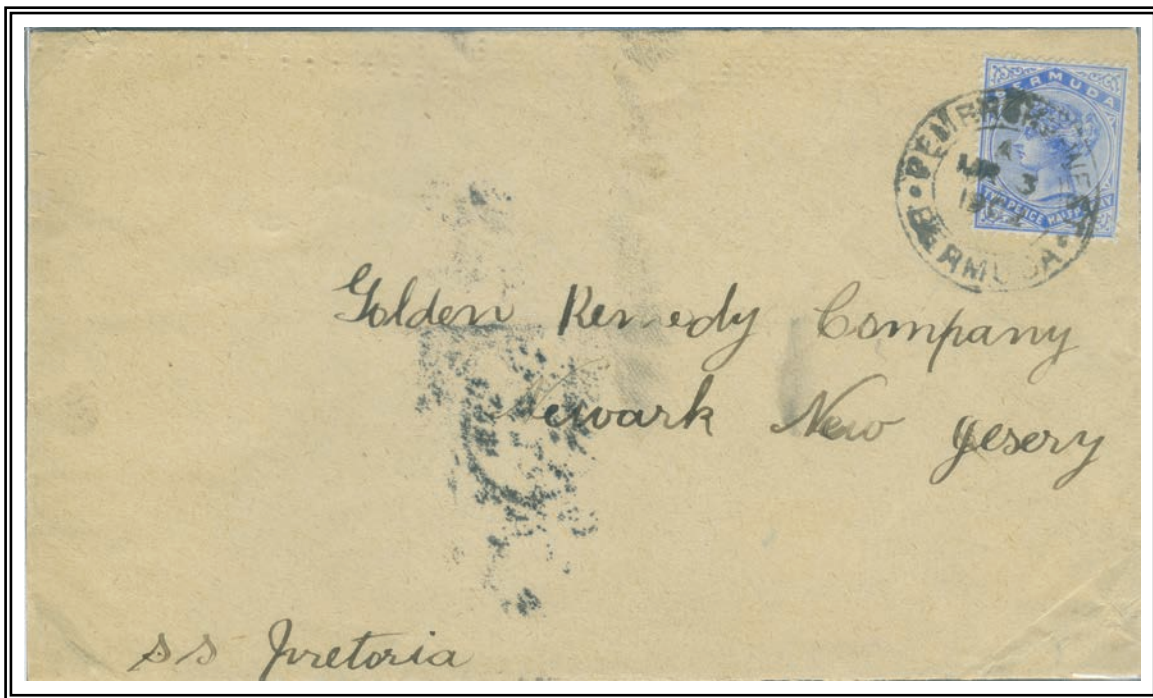 BERMUDA
TWO PENCE HALFPENNY
PEMBROKE WEST
A
3
BERMUDA
Golden Remedy Company
Newark New Jesery
SS Pretoria